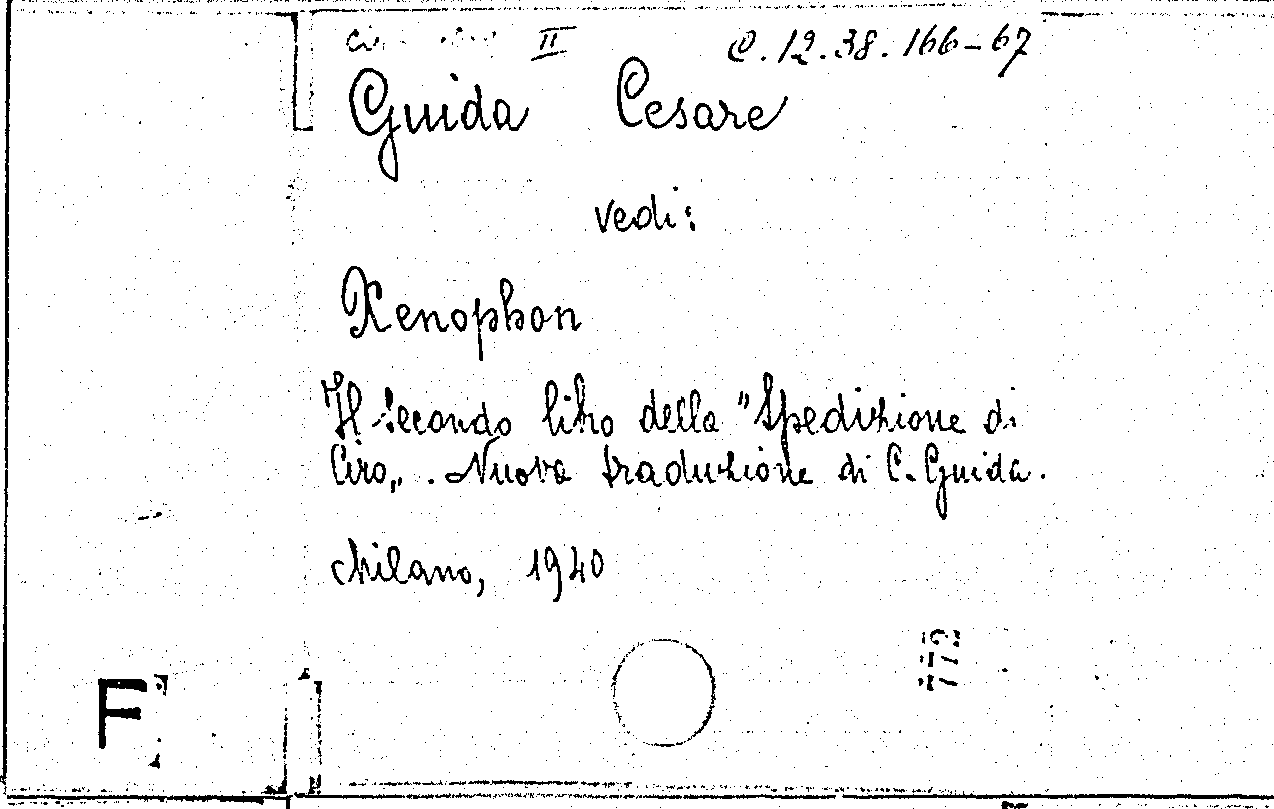 II C.12.38.166-67
Guida Cesare
vedi:
Xenophon
Il secondo libro della "Spedizione di
Ciro„. Nuova traduzione di C. Guida.
Milano, 1940
772
F